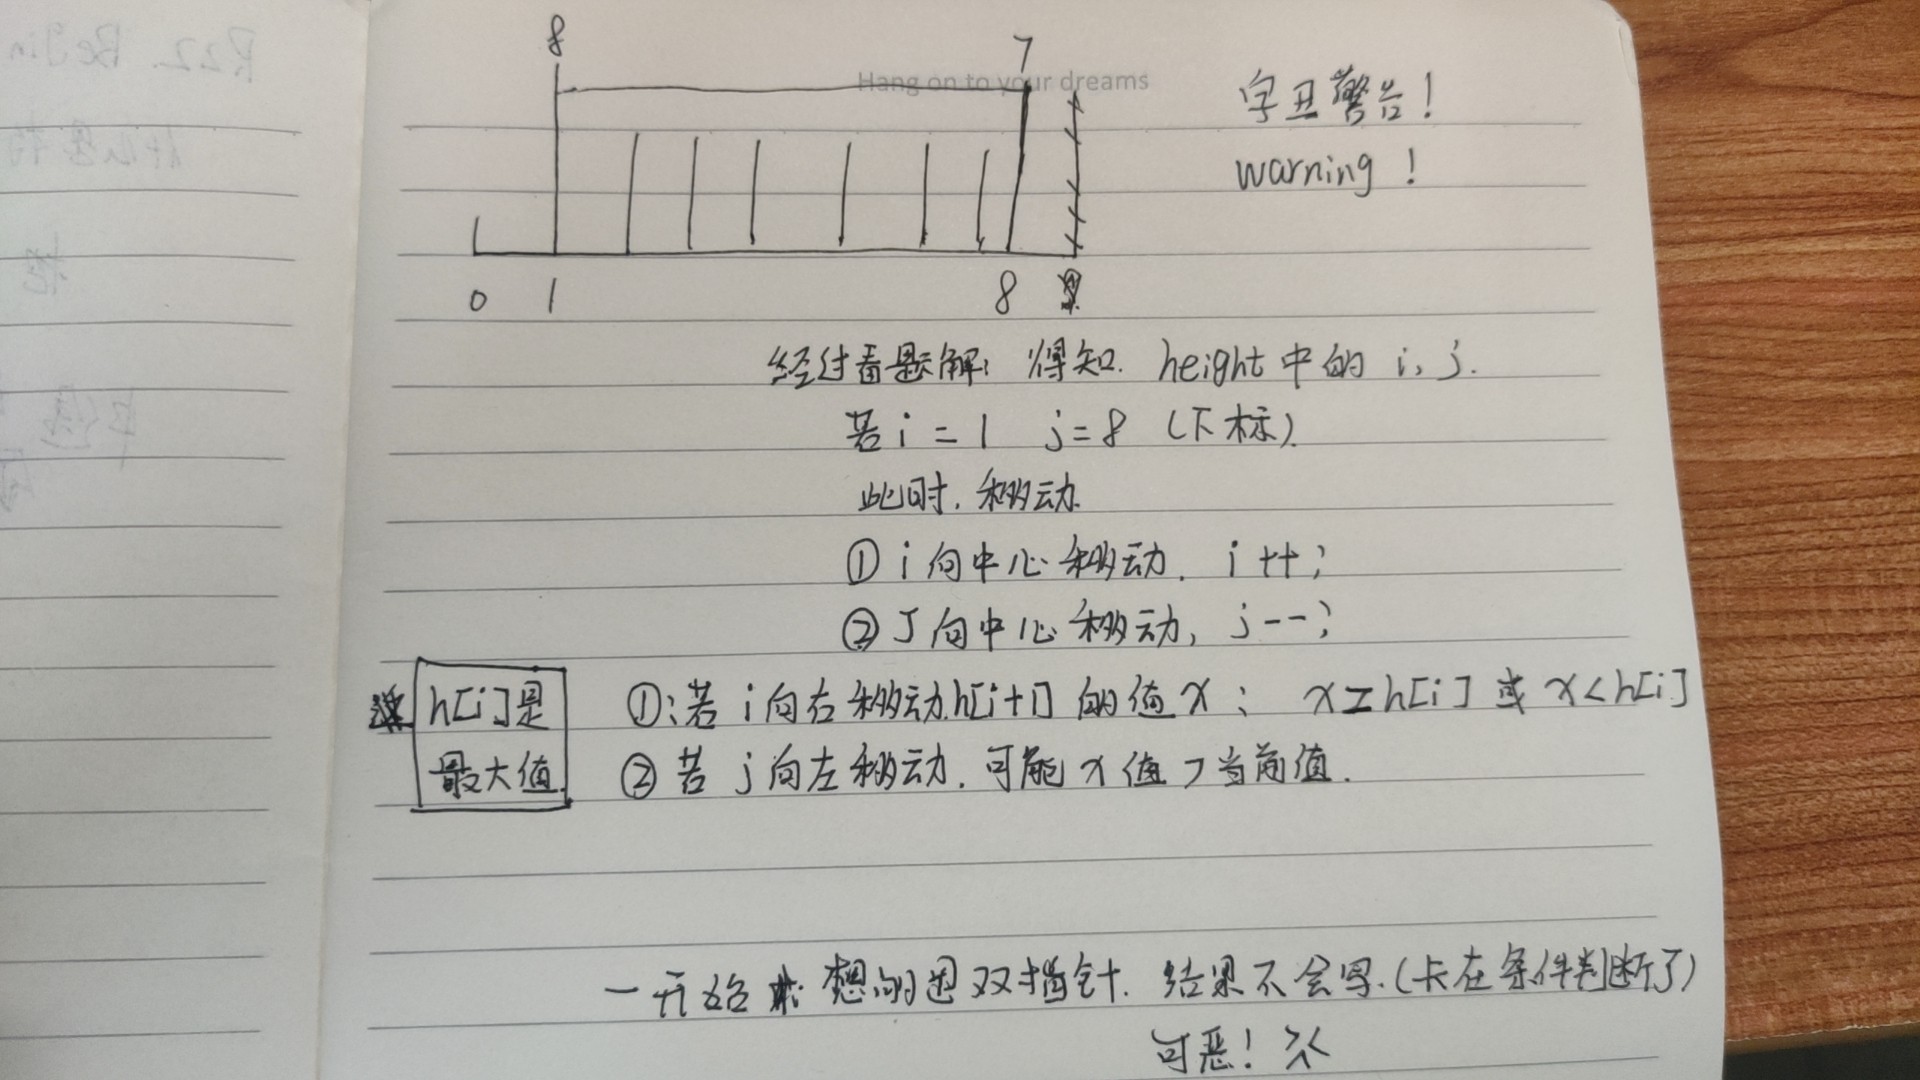 8 7
Hang on to your dreams
字丑警告!
warning!
0 1 8
经过看题解; 得知. height中的 i, j.
若 i = 1 j = 8 (下标).
此时, 移动.
① i 向中心移动, i++;
② J 向中心移动, j--;
h[i]是
最大值.
①:若 i 向右移动.h[i+1] 的值 x: x=h[i] 或 x<h[i]
② 若 j 向左移动, 可能 x 值 > 当前值.
一开始 想的过双指针. 结果不会写.(卡在条件判断了)
可恶! ><